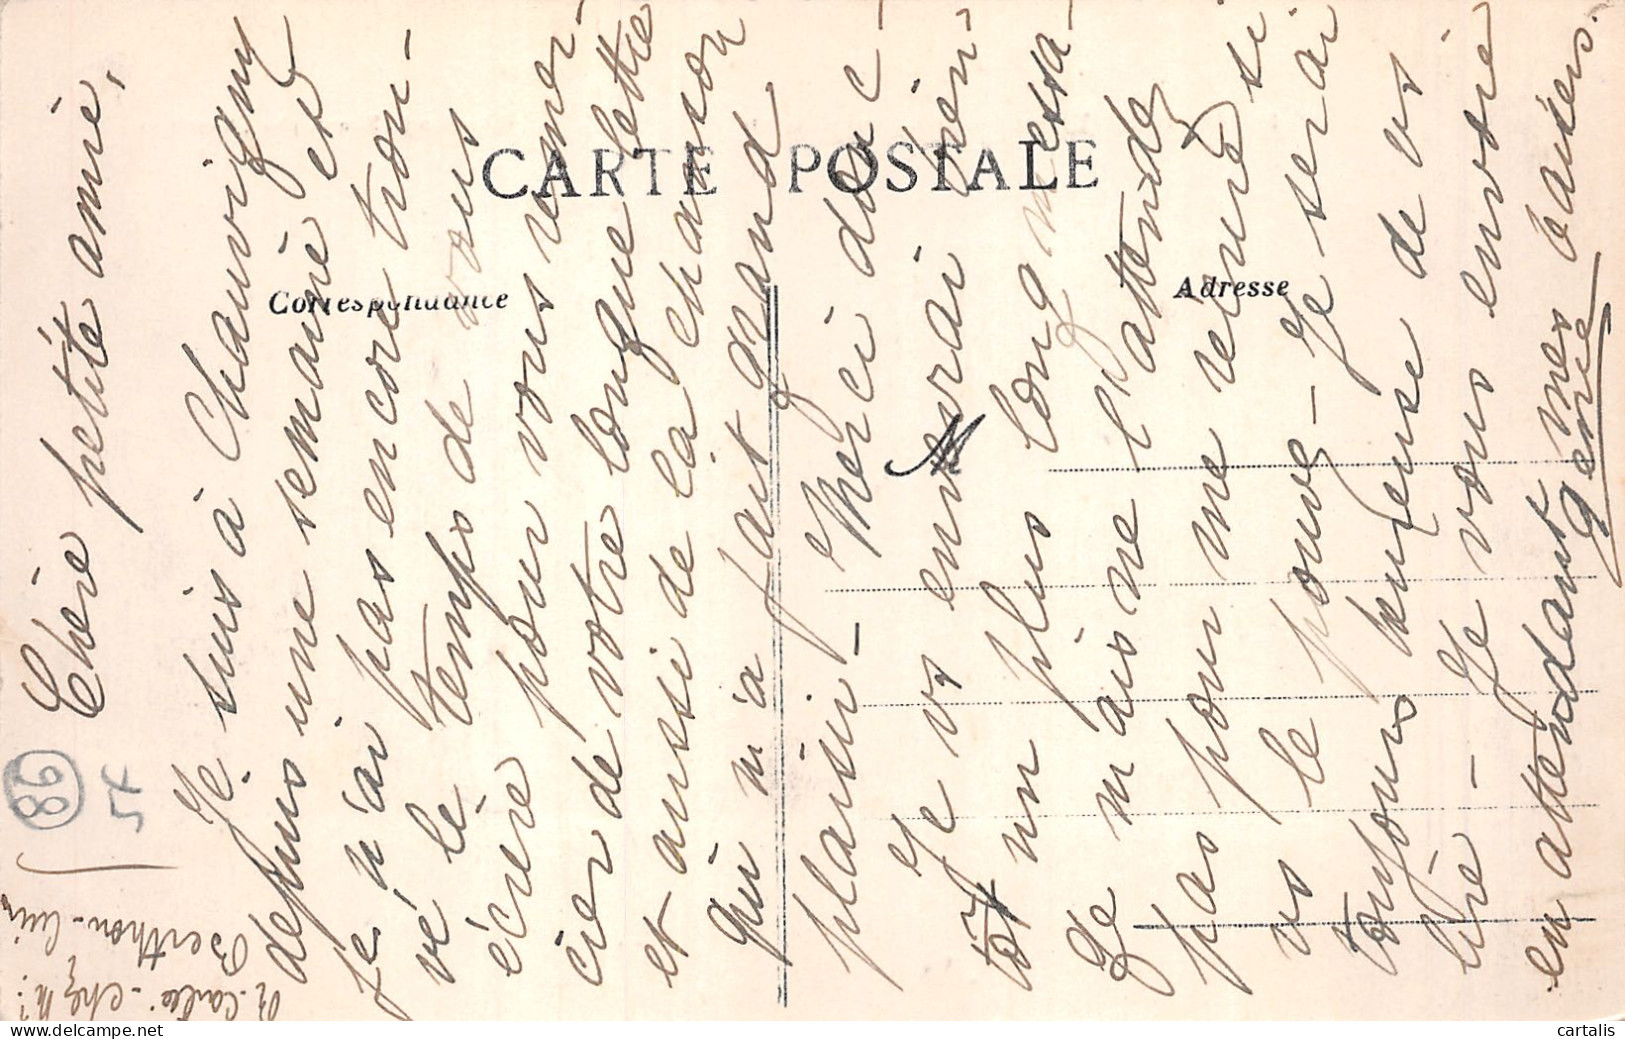 CARTE POSTALE
Correspondance
Adresse
Chère petite amie,
Je suis à Chauvigny
depuis une semaine et
je n'ai pas encore trou-
vé le temps de vous
écrire pour vous remer-
cier de votre longue lettre
et aussi de la chanson
qui m'a fait grand
plaisir - Merci donc -
Je vs enverrai bien-
tôt un plus long messa-
ge mais ne l'attendez
pas pour me venir si
vs le pouvez - Je serai
toujours heureuse de vs
lire - Je vous envoie
en attendant mes baisers.
Génie
86
54
Berthon
chez Mr
cartalis